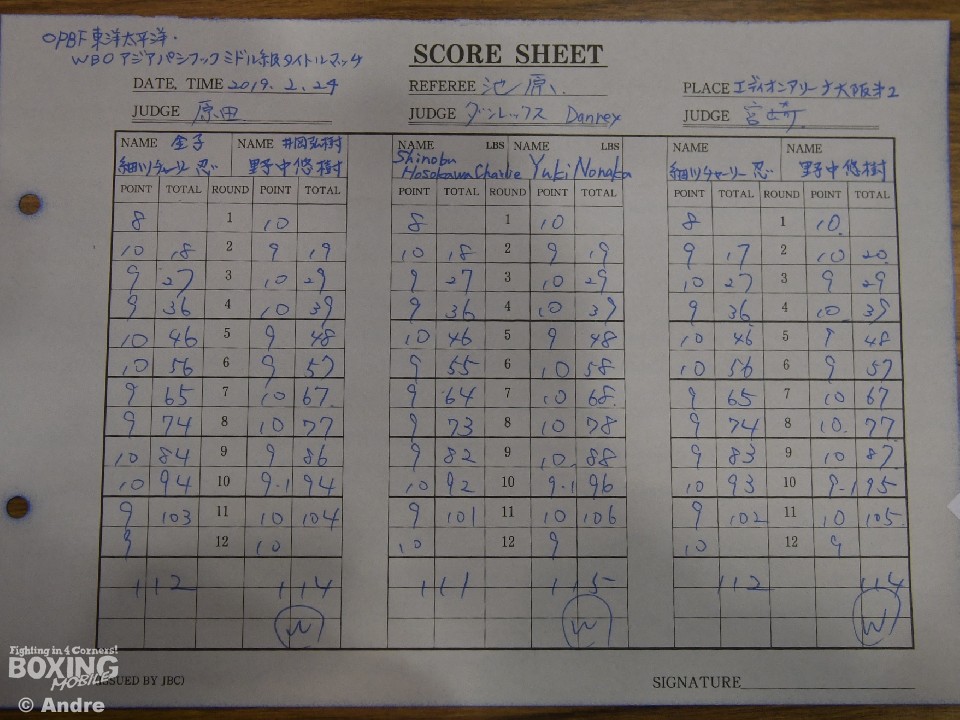 OPBF東洋太平洋・
WBOアジアパシフィックミドル級タイトルマッチ
SCORE SHEET
DATE, TIME 2019. 2. 24
REFEREE 池原
PLACE エディオンアリーナ大阪第2
JUDGE 原田
JUDGE ダンレックス Danrex
JUDGE 宮崎
NAME 金子 NAME 井岡弘樹 NAME LBS NAME LBS NAME NAME
細川チャーリー忍 野中悠樹 Shinobu Hosokawa Charlie Yuki Nonaka 細川チャーリー忍 野中悠樹
POINT TOTAL ROUND POINT TOTAL POINT TOTAL ROUND POINT TOTAL POINT TOTAL ROUND POINT TOTAL
8 1 10 8 1 10 8 1 10
10 18 2 9 19 10 18 2 9 19 9 17 2 10 20
9 27 3 10 29 9 27 3 10 29 10 27 3 9 29
9 36 4 10 39 9 36 4 10 39 9 36 4 10 39
10 46 5 9 48 10 46 5 9 48 10 46 5 9 48
10 56 6 9 57 9 55 6 10 58 10 56 6 9 57
9 65 7 10 67 9 64 7 10 68 9 65 7 10 67
9 74 8 10 77 9 73 8 10 78 9 74 8 10 77
10 84 9 9 86 9 82 9 10 88 9 83 9 10 87
10 94 10 9-1 94 10 92 10 9-1 96 10 93 10 9-1 95
9 103 11 10 104 9 101 11 10 106 9 102 11 10 105
9 12 10 10 12 9 10 12 9
112 114 111 115 112 114
W W W
Fighting in 4 Corners!
BOXING
MOBILE
(ISSUED BY JBC)
SIGNATURE
© Andre